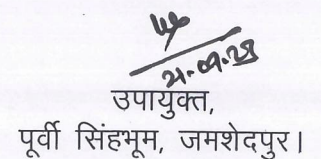 21.09.23
उपायुक्त,
पूर्वी सिंहभूम, जमशेदपुर।